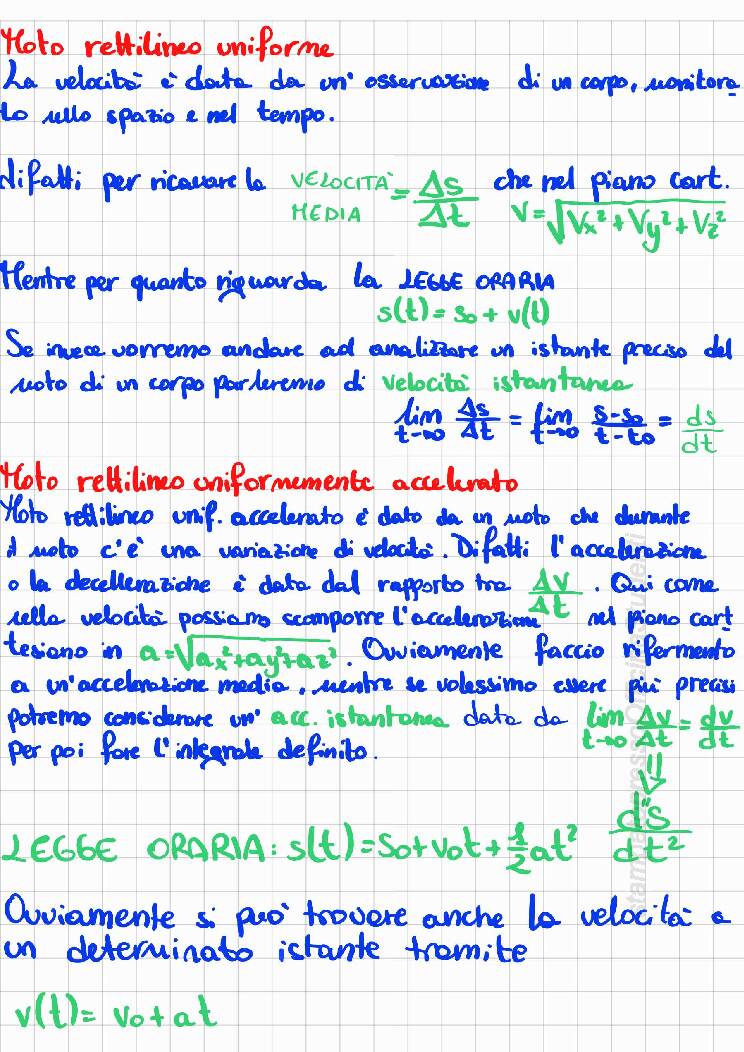 Moto rettilineo uniforme
La velocità è data da un' osservazione di un corpo, monitora
to nello spazio e nel tempo.
difatti per ricavare la VELOCITÀ MEDIA = Δs/Δt che nel piano cart.
V=√Vx²+Vy²+Vz²
Mentre per quanto riguarda la LEGGE ORARIA
s(t)=s₀+v(t)
Se invece vorremo andare ad analizzare un istante preciso del
moto di un corpo parleremo di velocità istantanea
lim t→0 Δs/Δt = lim t→0 s-s₀/t-t₀ = ds/dt
Moto rettilineo uniformemente accelerato
Moto rettilineo unif. accelerato è dato da un moto che durante
il moto c'è una variazione di velocità. Difatti l'accelerazione
o la decellerazione è data dal rapporto tra ΔV/Δt. Qui come
nella velocità possiamo scomporre l'accelerazione nel piano cart
tesiano in a=√ax²+ay²+az². Ovviamente faccio rifermento
a un'accelerazione media, mentre se volessimo essere più precisi
potremo considerare un' acc. istantanea data da lim t→0 Δv/Δt = dv/dt
per poi fare l'integrale definito.
⇓
d"s/dt²
LEGGE ORARIA: s(t)=S₀+v₀t+1/2at²
Ovviamente si può trovare anche la velocità a
un determinato istante tramite
v(t)= v₀+at